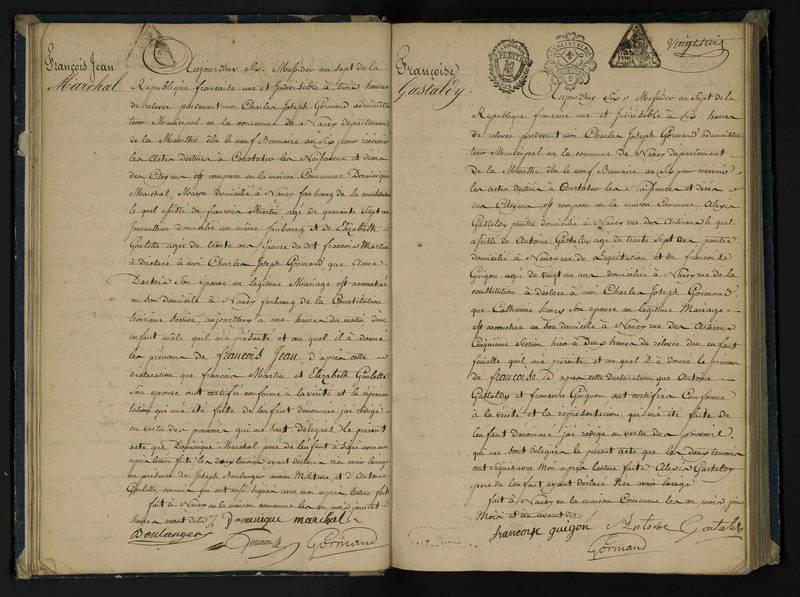 François Jean
Marchal
Aujourd'huy six Messidor an sept de la
République française une et Indivisible à trois heures
de relevée pardevant moi Charles Joseph Gormand administra
teur Municipal en la commune de Nancy département
de la Meurthe élu le neuf Brumaire an Six pour recevoir
les actes destinés à Constater les Naissances et décès
des Citoyens est comparu en la maison Commune Dominique
Marchal, Maçon domicilié à Nancy faubourg de la constitution
le quel assisté de francois Martin agé de quarante Sept ans
journalier domicilié au même faubourg et de Elizabeth
Goulette agée de trente ans Epouse du dit francois Martin
a déclaré à moi Charles Joseph Gormand que Anne
son épouse en légitime Mariage est accouchée
en son domicile à Nancy faubourg de la Constitution
troisieme Section, aujourdhuy à une heure du matin dun
enfant mâle quil ma présenté et au quel il à donné
les prénoms de francois Jean d'après cette
déclaration que francois Martin et Elizabeth Goulette
Son épouse ont certifiée conforme à la vérité et la représen
tation qui ma été faite de lenfant dénommé jai rédigé
en vertu des pouvoirs qui me sont délégués le présent
acte que Dominique Marchal pere de lenfant à signé avec moi
après lecture faite, les deux temoins ayant déclaré ne avoir lusage
en présence de Joseph Boulanger ancien Militaire et d'Antoine
Goulette, commis qui ont aussi signés avec moi après lecture fait
fait à Nancy en la maison commune les an mois jour et
heure avant dits Dominique marchal
Boulanger
Gormand
Françoise
Gastaldy
Vingt trois
Aujourdhuy Six Messidor an Sept de la
République francaise une et indivisible à Six heures
de relevée pardevant moi Charles Joseph Gormand administra
teur Municipal en la commune de Nancy département
de la Meurthe élu le neuf Brumaire an Six pour recevoir
les actes destinés à Constater les Naissances et décès
des Citoyens est comparu en la maison Commune Alexis
Gastaldy peintre domicilié à Nancy rue des Artisans le quel
assisté de Antoine Gastaldy agé de trente Sept ans peintre
domicilié à Nancy rue de Lequitation et de francoise
Guigon agée de vingt un ans domiciliée à Nancy rue de la
constitution à déclaré à moi Charles Joseph Gormand
que Catherine henry Son épouse en légitime Mariage
est accouchée en son domicile à Nancy rue des Artisans
Cinquième Section hier à Deux heures de relevée dun enfant
femelle quil ma présenté et au quel il à donné le prénom
de francoise d'après cette déclaration que Antoine
Gastaldy et francoise Guignon ont certifiée Conforme
à la vérité et la représentation qui ma été faite de
lenfant dénommé jai rédigé en vertu des pouvoirs
qui me sont délégués le présent acte que les deux temoins
ont signés avec Moi après lecture faite Alexis Gastaldy
pere de lenfant ayant declaré Nen avoir lusage
fait à Nancy en la maison Commune les an mois jour
francoise guigon Antoine Gastaldy
Gormand